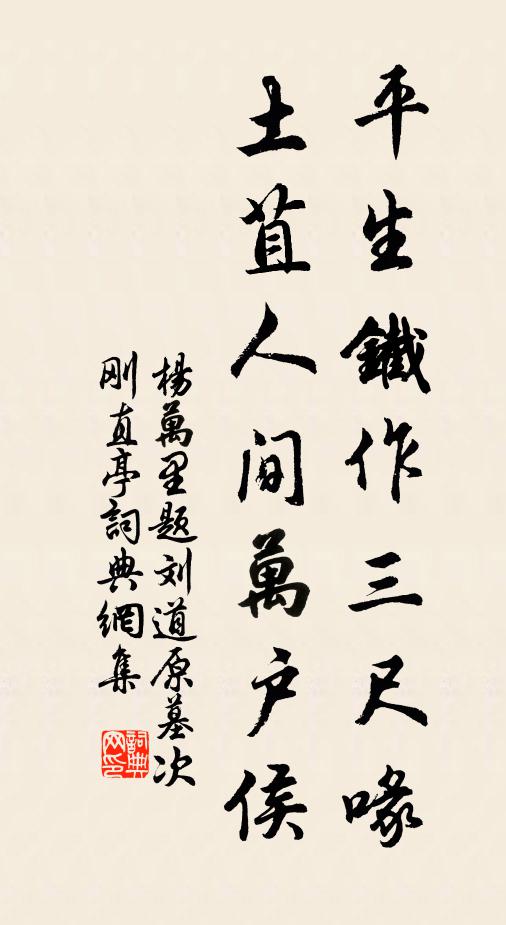 平生鐵作三尺喙
土苴人間萬户侯
楊萬里題刘道原墓次
刚直亭詞典網集
詞典网印